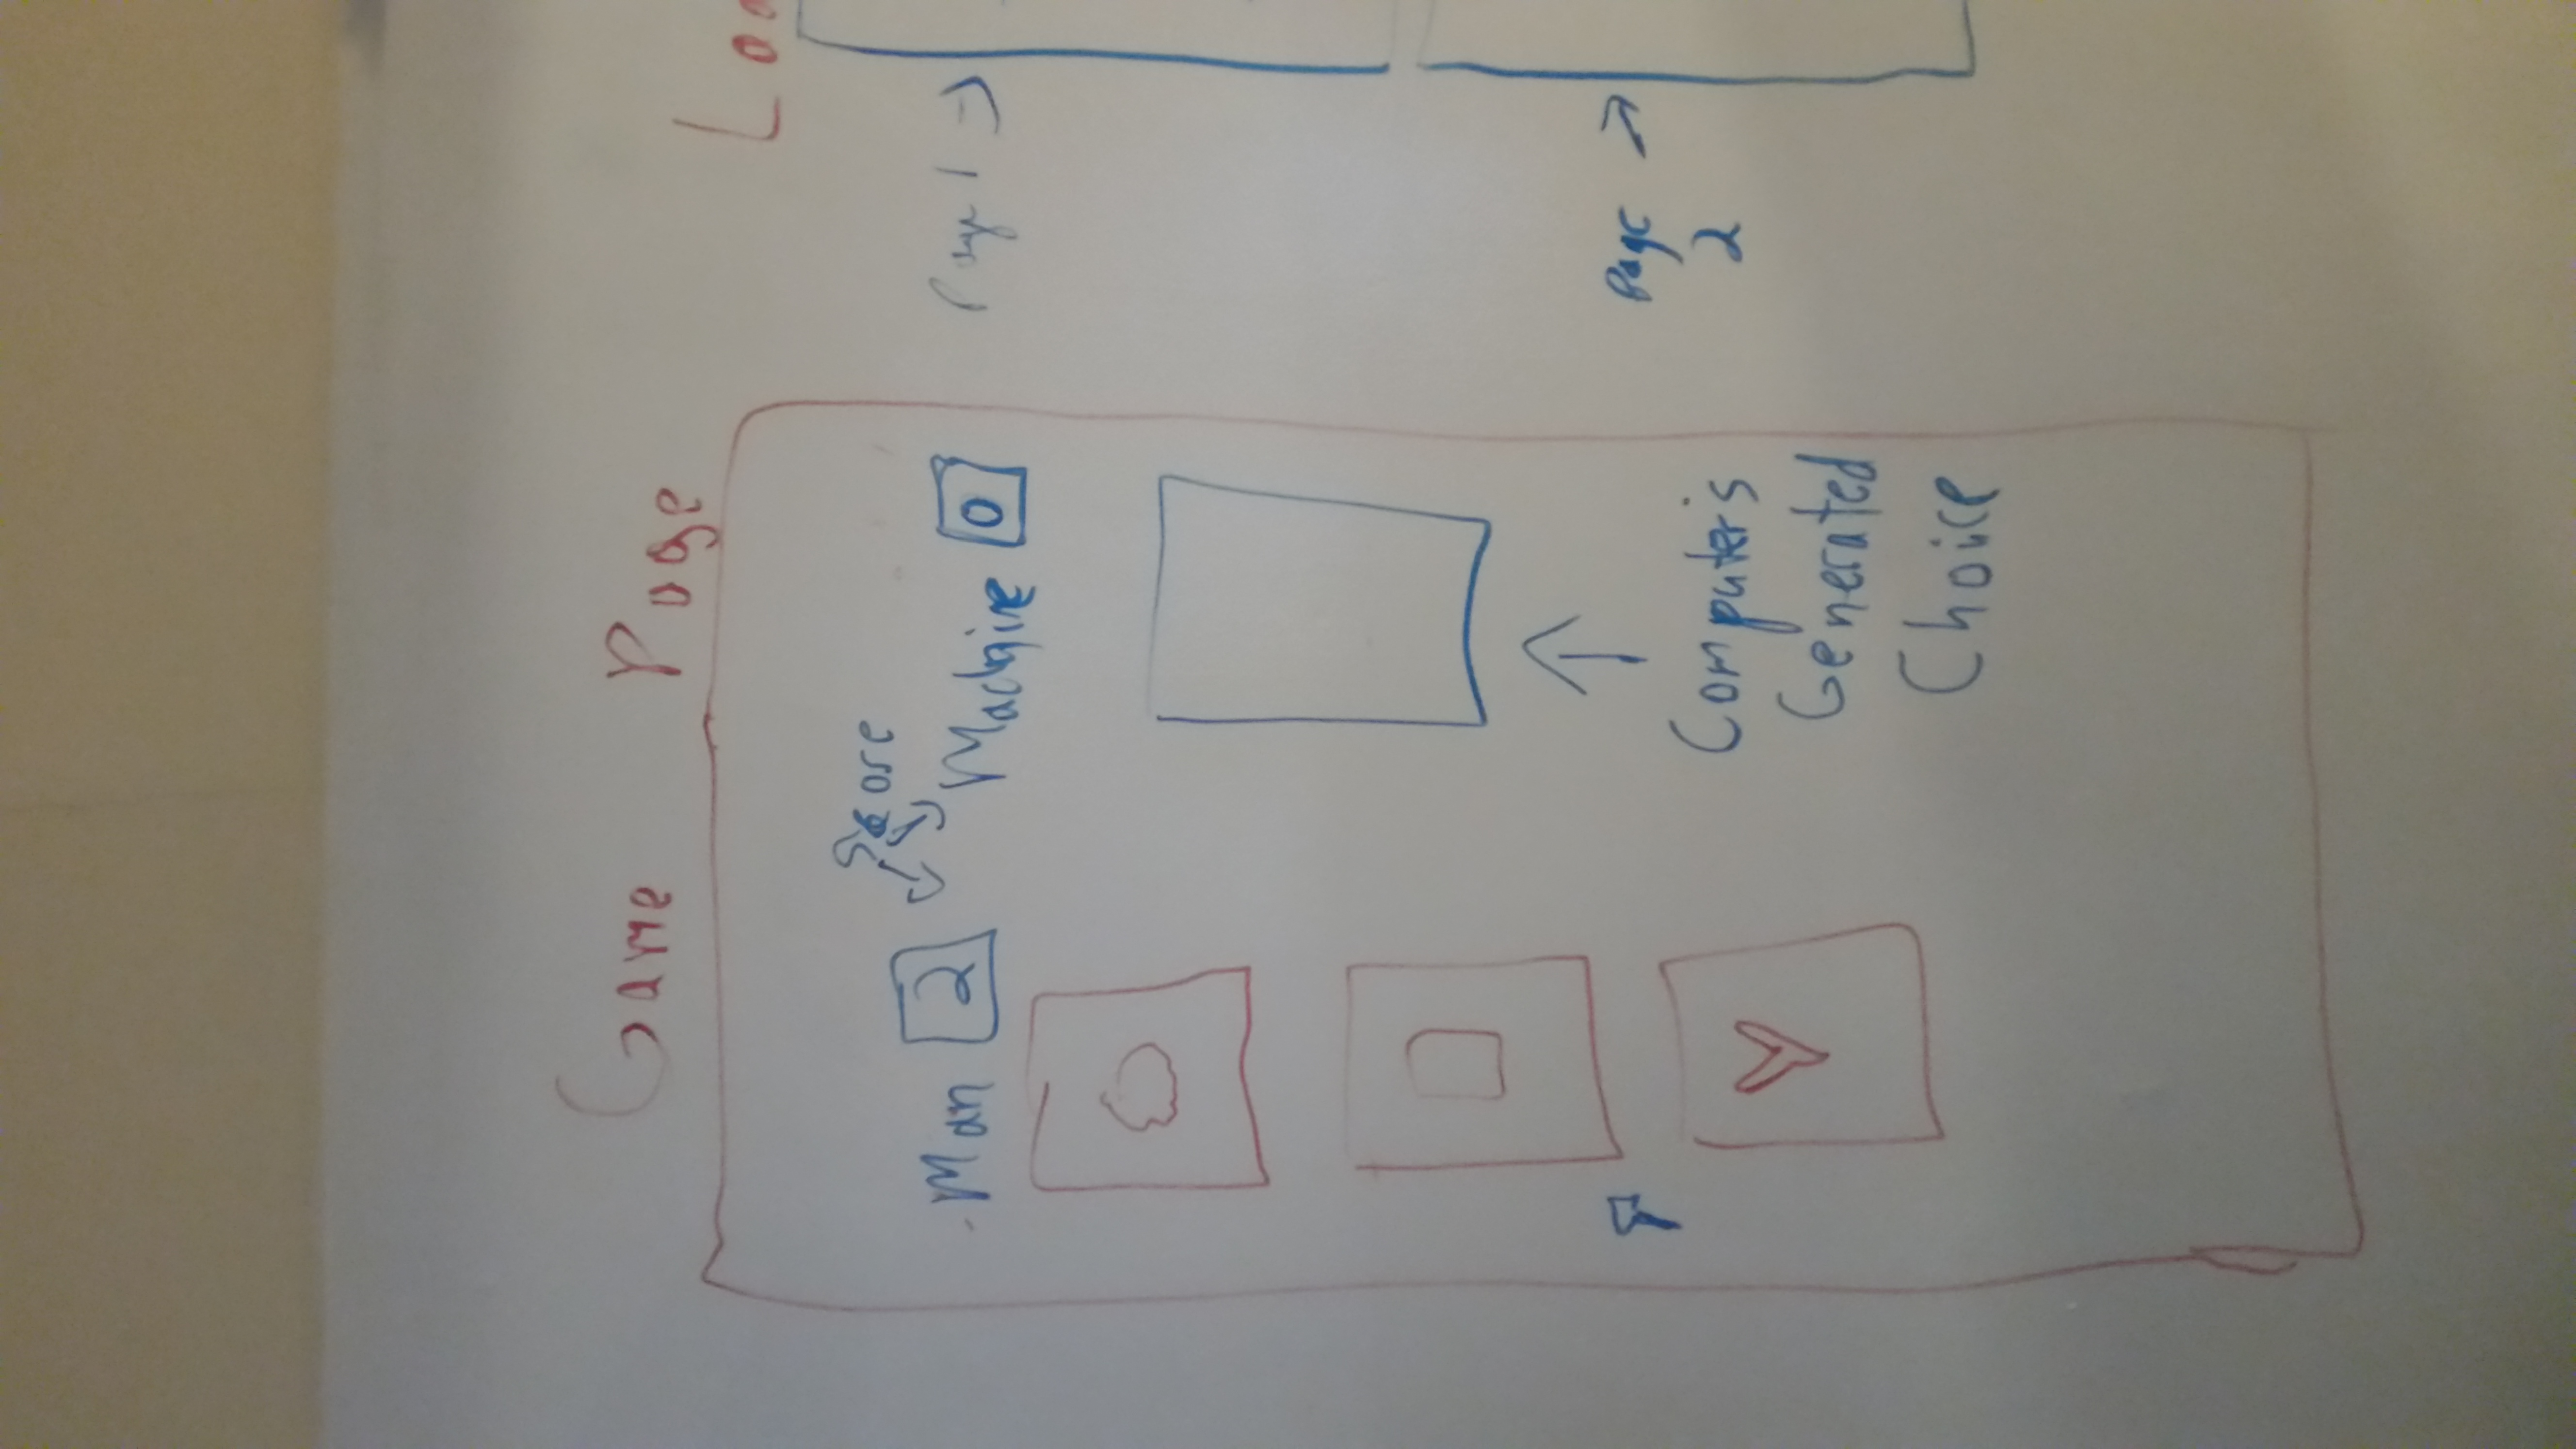 Game Page
Score
Man 2
Machine 0
Computer's
Generated
Choice
Page 1
Page
2